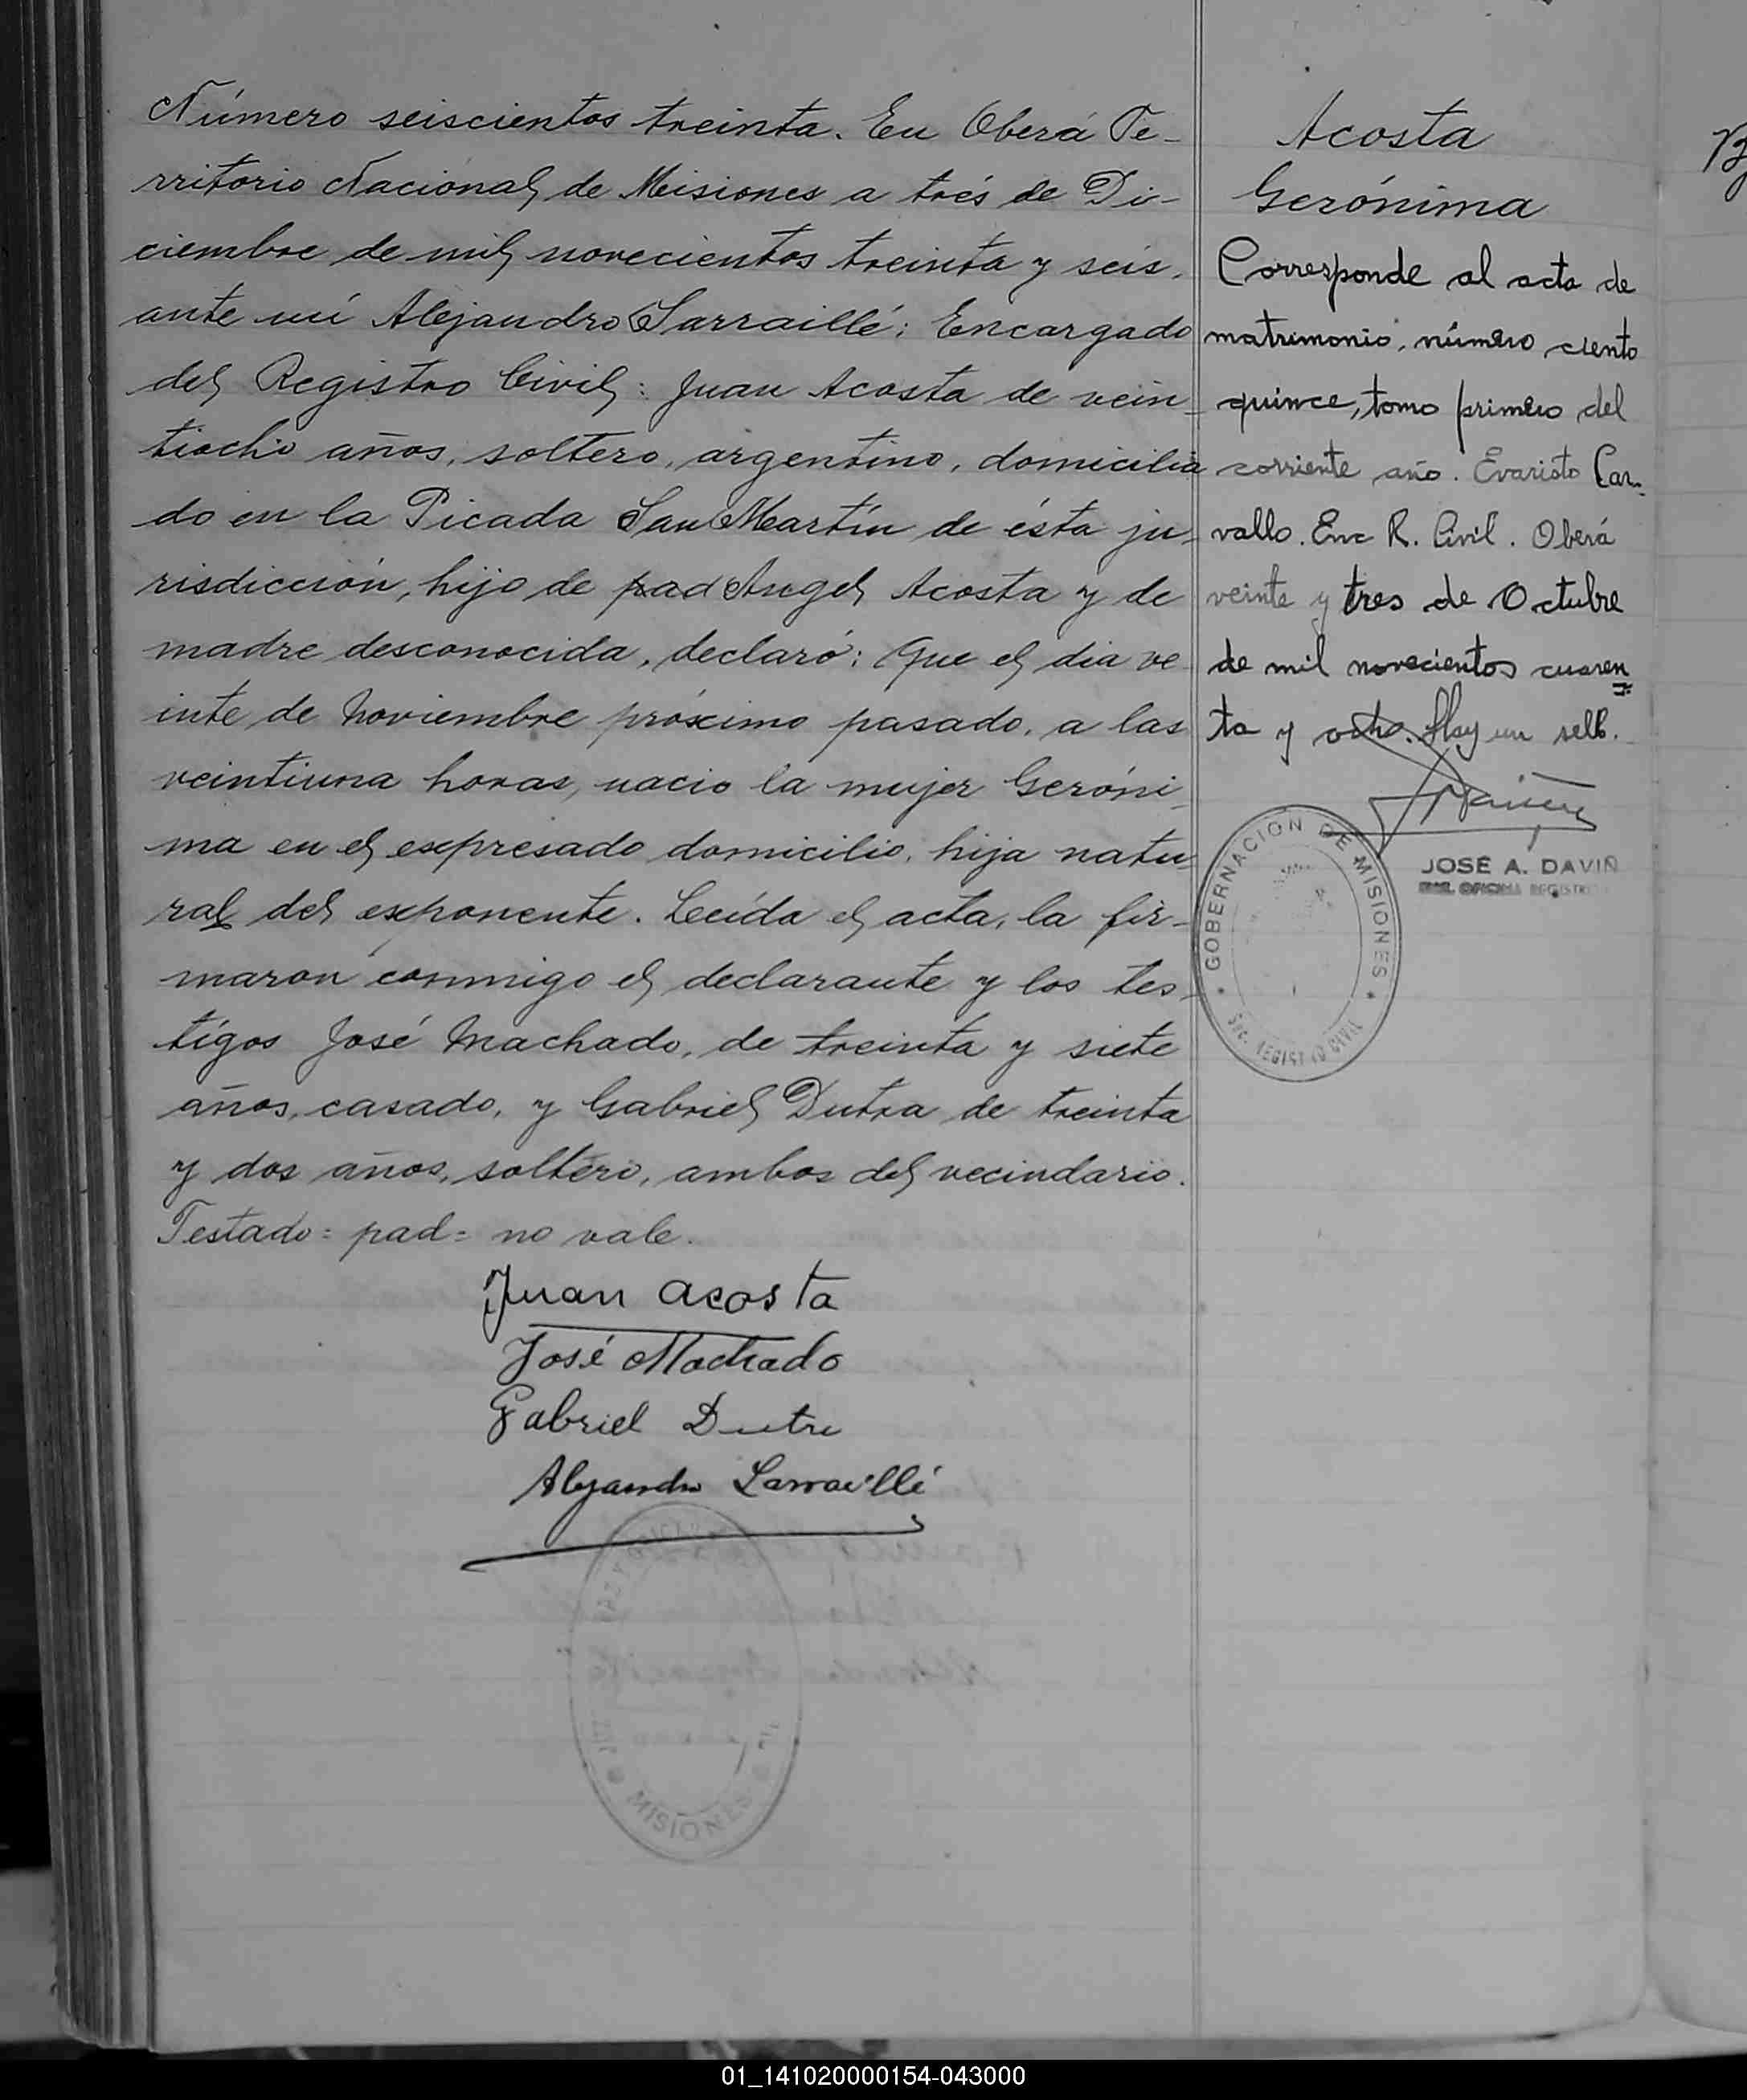 Número seiscientos treinta. En Oberá Te-
rritorio Nacional de Misiones a trés de Di-
ciembre de mil novecientos treinta y seis,
ante mí Alejandro Sarraillé: Encargado
del Registro Civil: Juan Acosta de vein-
tiocho años, soltero, argentino, domicilia
do en la Picada San Martín de ésta ju-
risdicción, hijo de pad Angel Acosta y de
madre desconocida, declaró: Que el dia ve
inte de Noviembre próximo pasado, a las
veintiuna horas, nacio la mujer Geróni-
ma en el expresado domicilio, hija natu-
ral del exponente. Leída el acta, la fir-
maron conmigo el declarante y los tes-
tigos José Machado, de treinta y siete
años, casado, y Gabriel Dutra de treinta
y dos años, soltero, ambos del vecindario.
Testado = pad = no vale.
Juan Acosta
José Machado
Gabriel Dutra
Alejandro Sarraillé
MISIONES
Acosta
Gerónima
Corresponde al acta de
matrimonio, número ciento
quince, tomo primero del
corriente año. Evaristo Car-
vallo. Enc R. Civil. Oberá
veinte y tres de Octubre
de mil novecientos cuaren
ta y ocho. Hay un sello.
GOBERNACION DE MISIONES
SEC. REGISTRO CIVIL
JOSÉ A. DAVIÑ
01_141020000154-043000